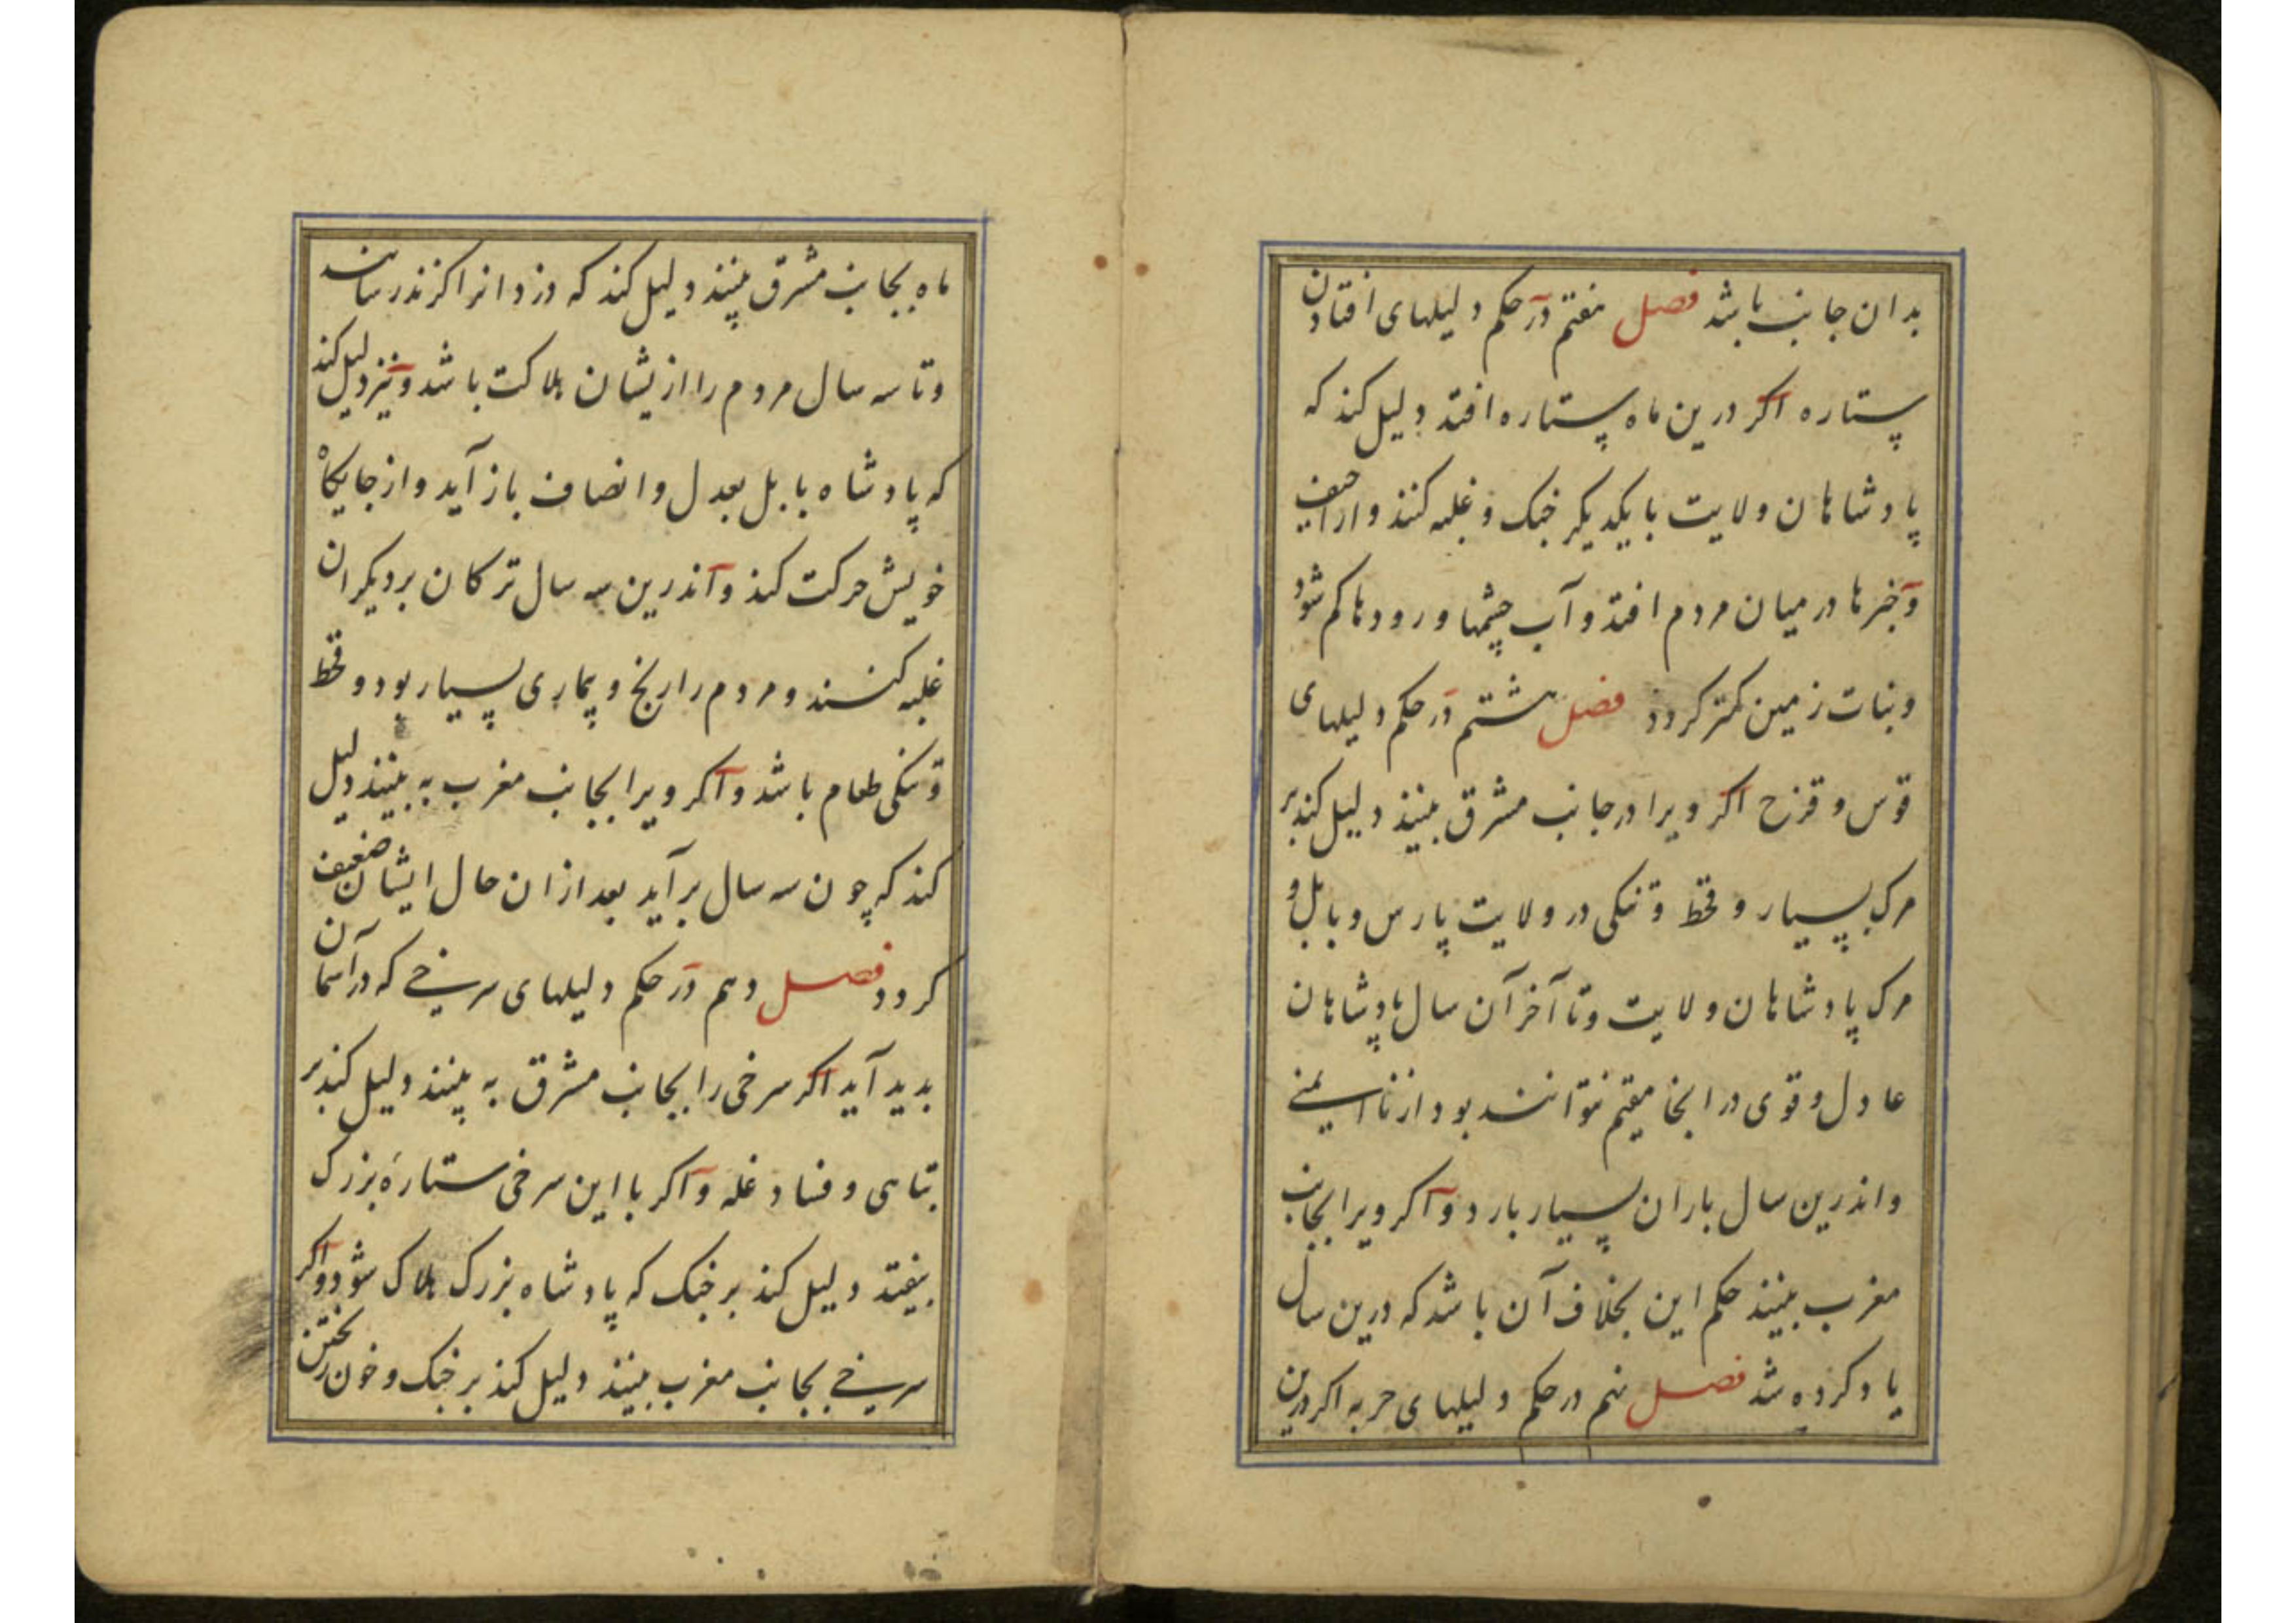 بدان جانب باشد فصل هفتم در حکم دلیلهای افتادن
ستاره اکر درین ماه ستاره افتد دلیل کند که
پادشاهان ولایت با یکدیکر جنک و غلبه کنند و اراجیف
و خبرها در میان مردم افتد و آب چشمها و رودها کم شود
و نبات زمین کمتر کردد فصل هشتم در حکم دلیلهای
قوس و قزح اکر ویرا در جانب مشرق بینند دلیل کند بر
مرک بسیار و قحط و تنکی در ولایت پارس و بابل و
مرک پادشاهان ولایت و تا آخر آن سال پادشاهان
عادل و قوی در انجا مقیم نتوانند بود از ناایمنی
و اندرین سال باران بسیار بارد و اکر ویرا بجانب
مغرب بینند حکم این بخلاف آن باشد که درین سال
یاد کرده شد فصل نهم در حکم دلیلهای حربه اکر درین
ماه بجانب مشرق بینند دلیل کند که دزدانرا کزند رسانند
و تا سه سال مردم را ازیشان هلاکت باشد و نیز دلیل کند
که پادشاه بابل بعدل و انصاف باز آید و از جایکاه
خویش حرکت کند و اندرین سه سال ترکان بر دیکران
غلبه کنند و مردم را رنج و بیماری بسیار بود و قحط
و تنکی طعام باشد و اکر ویرا بجانب مغرب به بینند دلیل
کند که چون سه سال برآید بعد از ان حال ایشان ضعیف
کردد فصل دهم در حکم دلیلهای سرخی که در آسمان
بدید آید اکر سرخی را بجانب مشرق به بینند دلیل کند بر
تباهی و فساد غله و اکر با این سرخی ستارهٔ بزرک
بیفتد دلیل کند بر جنک که پادشاه بزرک هلاک شود و اکر
سرخی بجانب مغرب بینند دلیل کند بر جنک و خون ریختن